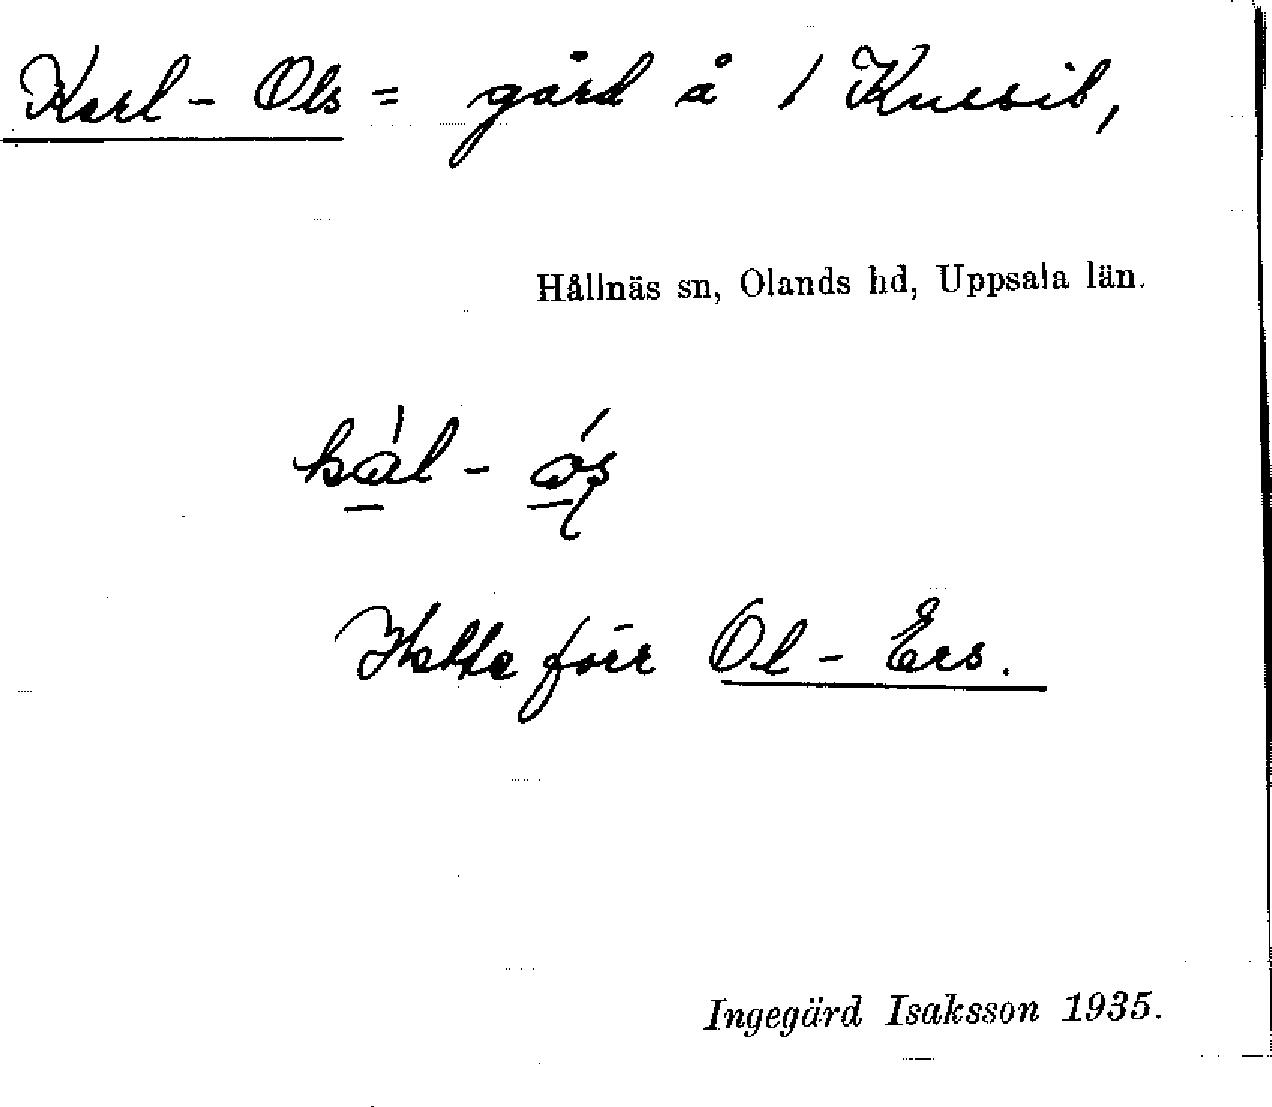 Karl-Ols = gård å / Kussil,
Hållnäs sn, Olands hd, Uppsala län.
kàl - ós
Hette förr Ol-Ers.
Ingegärd Isaksson 1935.